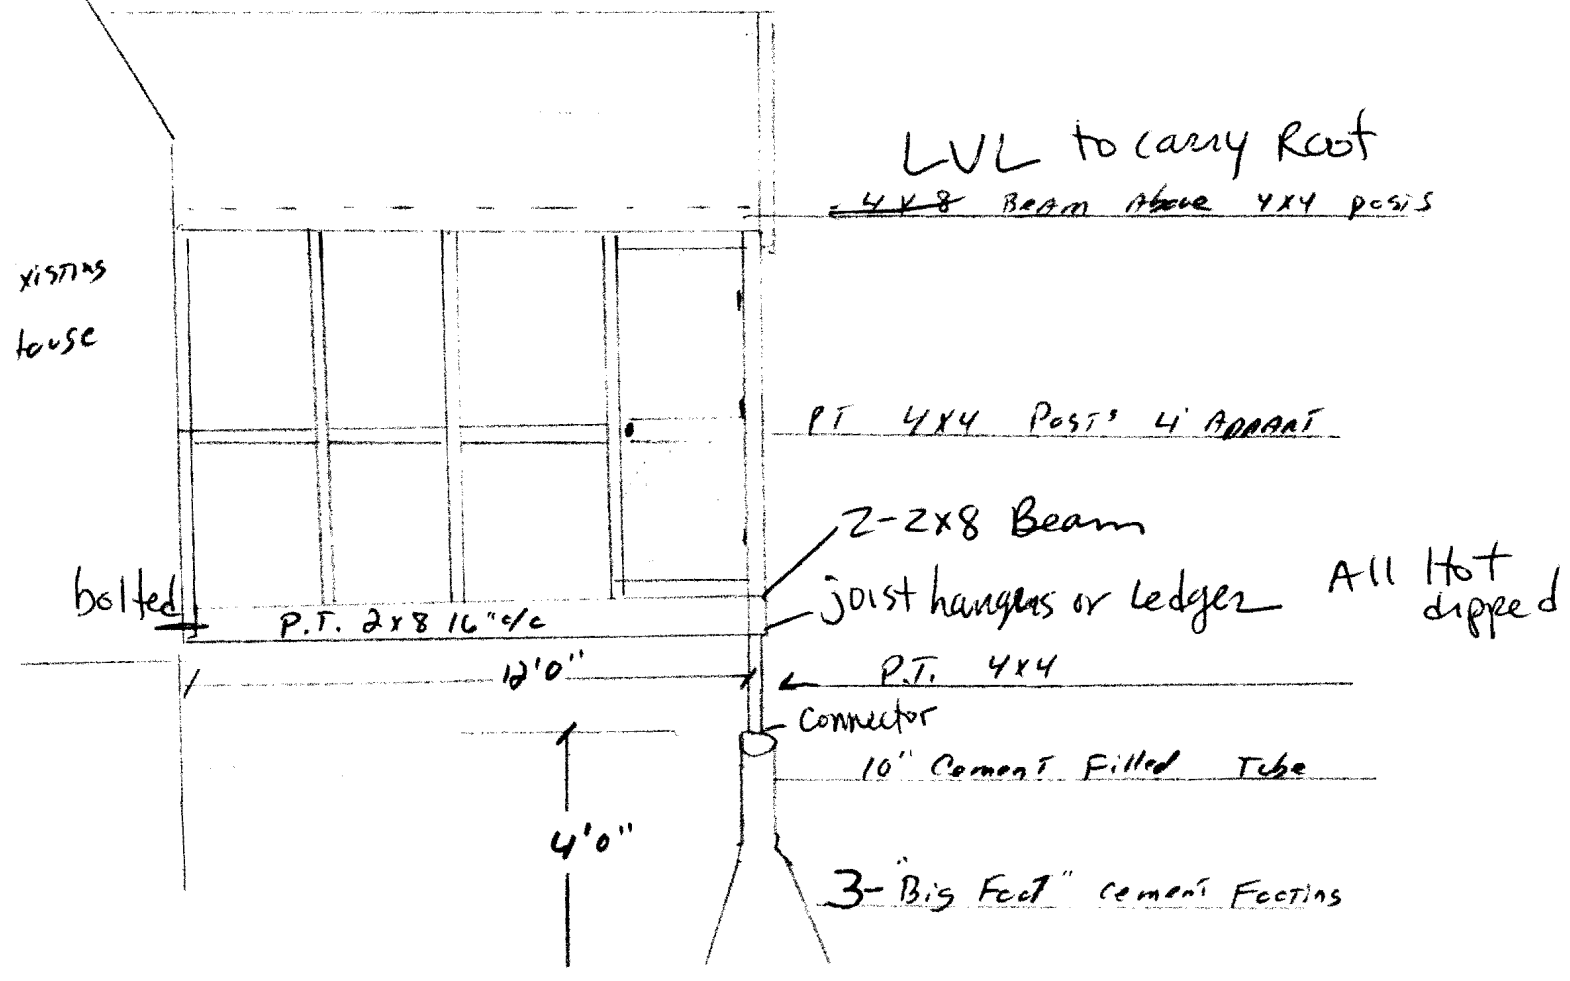 LVL to carry Roof
4x8 Beam Above 4x4 posts
xisting
house
PT 4x4 Post's 4' Appart
2-2x8 Beam
joist hangers or Ledger
All Hot
dipped
bolted
P.T. 2x8 16" c/c
12'0"
P.T. 4x4
Connector
10" Cement Filled Tube
4'0"
3-"Big Foot" Cement Footing